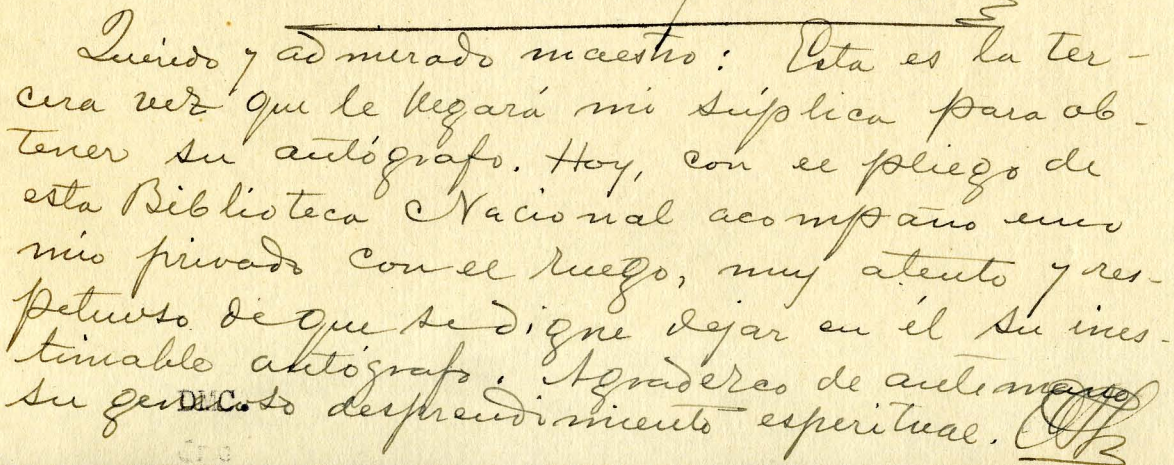 Querido y admirado maestro: Esta es la ter-
cera vez que le llegará mi súplica para ob-
tener su autógrafo. Hoy, con el pliego de
esta Biblioteca Nacional acompaño uno
mío privado con el ruego, muy atento y res-
petuoso de que se digne dejar en él su ines-
timable autógrafo. Agradezco de antemano
su generoso desprendimiento esperitual.
DUC.